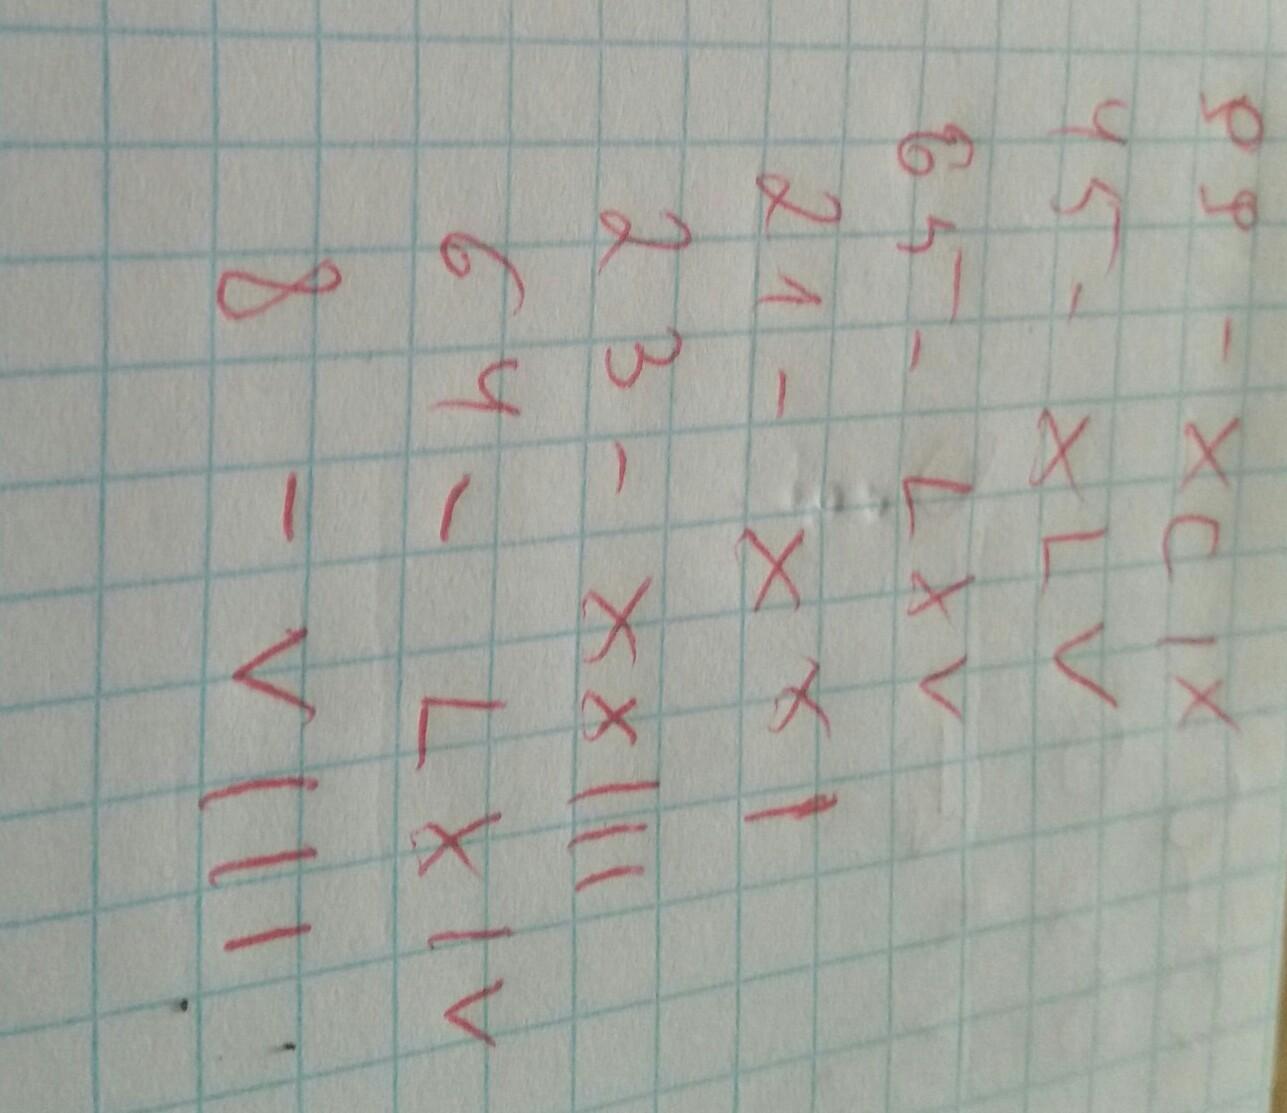 99 - XCIX
45 - XLV
65 - LXV
21 - XXI
23 - XXIII
64 - LXIV
8 - VIII